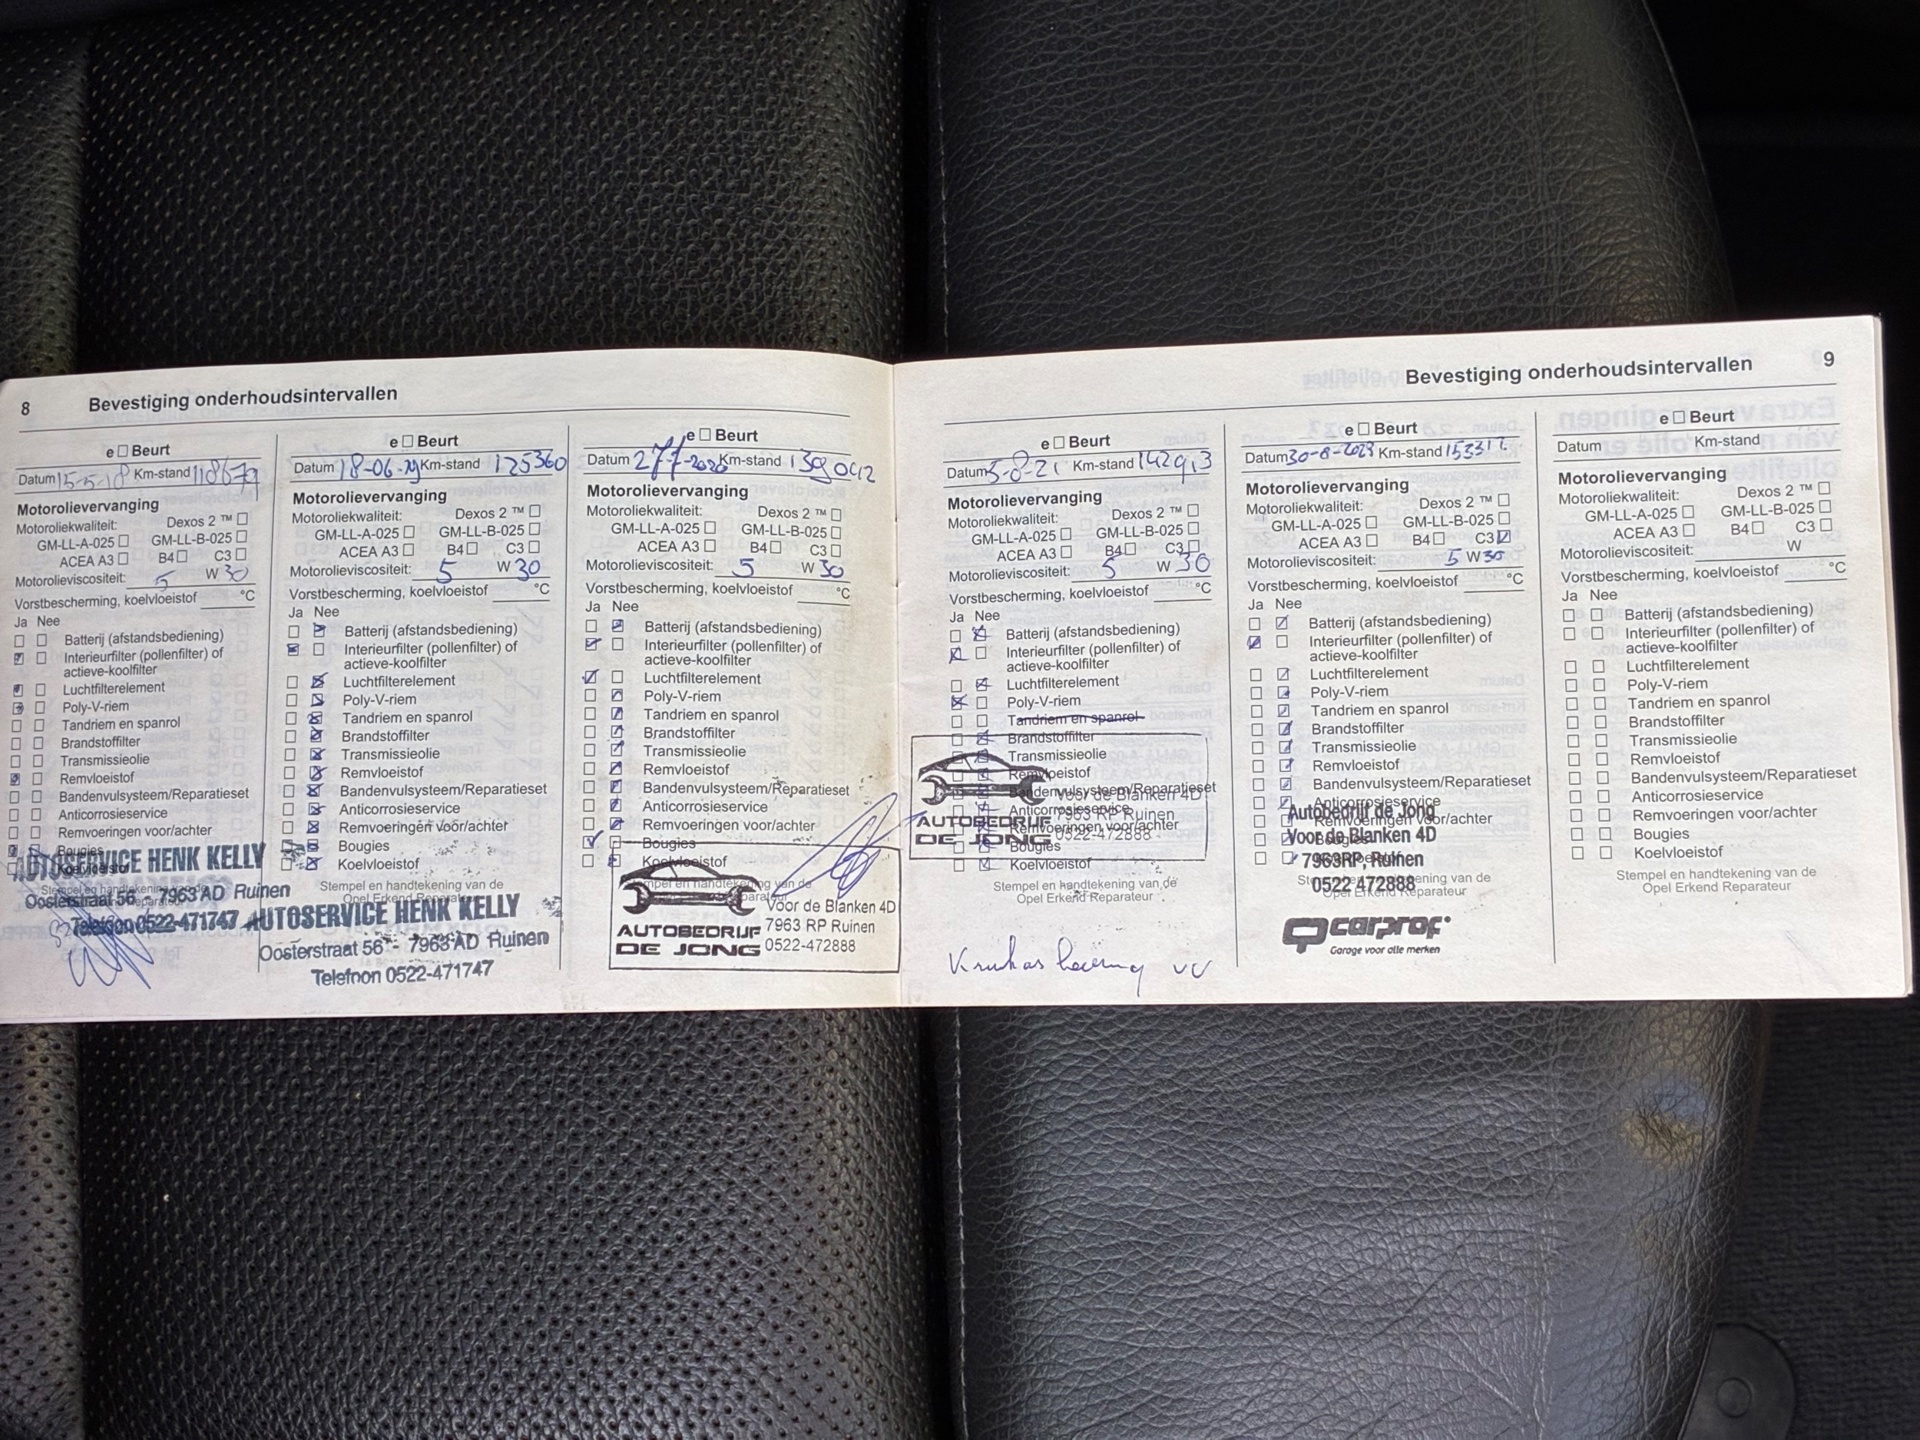 8 Bevestiging onderhoudsintervallen
e ☐ Beurt
Datum 15-5-18 Km-stand 118679
Motorolievervanging
Motoroliekwaliteit: Dexos 2 ™ ☐
GM-LL-A-025 ☐ GM-LL-B-025 ☐
ACEA A3 ☐ B4 ☐ C3 ☐
Motorolieviscositeit: 5 W 30
Vorstbescherming, koelvloeistof °C
Ja Nee
Batterij (afstandsbediening)
Interieurfilter (pollenfilter) of
actieve-koolfilter
Luchtfilterelement
Poly-V-riem
Tandriem en spanrol
Brandstoffilter
Transmissieolie
Remvloeistof
Bandenvulsysteem/Reparatieset
Anticorrosieservice
Remvoeringen voor/achter
Bougies
Koelvloeistof
Stempel en handtekening van de
AUTOSERVICE HENK KELLY
Oosterstraat 56 - 7963 AD Ruinen
Telefoon 0522-471747
e ☐ Beurt
Datum 18-06-19 Km-stand 125360
Motorolievervanging
Motoroliekwaliteit: Dexos 2 ™ ☐
GM-LL-A-025 ☐ GM-LL-B-025 ☐
ACEA A3 ☐ B4 ☐ C3 ☐
Motorolieviscositeit: 5 W 30
Vorstbescherming, koelvloeistof °C
Ja Nee
Batterij (afstandsbediening)
Interieurfilter (pollenfilter) of
actieve-koolfilter
Luchtfilterelement
Poly-V-riem
Tandriem en spanrol
Brandstoffilter
Transmissieolie
Remvloeistof
Bandenvulsysteem/Reparatieset
Anticorrosieservice
Remvoeringen voor/achter
Bougies
Koelvloeistof
Stempel en handtekening van de
Opel Erkend Reparateur
AUTOSERVICE HENK KELLY
Oosterstraat 56 - 7963 AD Ruinen
Telefoon 0522-471747
e ☐ Beurt
Datum 27-7-2020 Km-stand 139042
Motorolievervanging
Motoroliekwaliteit: Dexos 2 ™ ☐
GM-LL-A-025 ☐ GM-LL-B-025 ☐
ACEA A3 ☐ B4 ☐ C3 ☐
Motorolieviscositeit: 5 W 30
Vorstbescherming, koelvloeistof °C
Ja Nee
Batterij (afstandsbediening)
Interieurfilter (pollenfilter) of
actieve-koolfilter
Luchtfilterelement
Poly-V-riem
Tandriem en spanrol
Brandstoffilter
Transmissieolie
Remvloeistof
Bandenvulsysteem/Reparatieset
Anticorrosieservice
Remvoeringen voor/achter
Bougies
Koelvloeistof
Stempel en handtekening van de
AUTOBEDRIJF
DE JONG
Voor de Blanken 4D
7963 RP Ruinen
0522-472888
Bevestiging onderhoudsintervallen 9
e ☐ Beurt
Datum 5-8-21 Km-stand 142913
Motorolievervanging
Motoroliekwaliteit: Dexos 2 ™ ☐
GM-LL-A-025 ☐ GM-LL-B-025 ☐
ACEA A3 ☐ B4 ☐ C3 ☐
Motorolieviscositeit: 5 W 30
Vorstbescherming, koelvloeistof °C
Ja Nee
Batterij (afstandsbediening)
Interieurfilter (pollenfilter) of
actieve-koolfilter
Luchtfilterelement
Poly-V-riem
Tandriem en spanrol
Brandstoffilter
Transmissieolie
Remvloeistof
Bandenvulsysteem/Reparatieset
Anticorrosieservice
Remvoeringen voor/achter
Bougies
Koelvloeistof
AUTOBEDRIJF
DE JONG
Voor de Blanken 4D
7963 RP Ruinen
0522-472888
Stempel en handtekening van de
Opel Erkend Reparateur
e ☐ Beurt
Datum 30-8-2023 Km-stand 153312
Motorolievervanging
Motoroliekwaliteit: Dexos 2 ™ ☐
GM-LL-A-025 ☐ GM-LL-B-025 ☐
ACEA A3 ☐ B4 ☐ C3 ☑
Motorolieviscositeit: 5 W 30
Vorstbescherming, koelvloeistof °C
Ja Nee
Batterij (afstandsbediening)
Interieurfilter (pollenfilter) of
actieve-koolfilter
Luchtfilterelement
Poly-V-riem
Tandriem en spanrol
Brandstoffilter
Transmissieolie
Remvloeistof
Bandenvulsysteem/Reparatieset
Anticorrosieservice
Remvoeringen voor/achter
Bougies
Autobedrijf de Jong
Voor de Blanken 4D
7963RP, Ruinen
0522-472888
Stempel en handtekening van de
Opel Erkend Reparateur
carprof
Garage voor alle merken
e ☐ Beurt
Datum Km-stand
Motorolievervanging
Motoroliekwaliteit: Dexos 2 ™ ☐
GM-LL-A-025 ☐ GM-LL-B-025 ☐
ACEA A3 ☐ B4 ☐ C3 ☐
Motorolieviscositeit: W
Vorstbescherming, koelvloeistof °C
Ja Nee
Batterij (afstandsbediening)
Interieurfilter (pollenfilter) of
actieve-koolfilter
Luchtfilterelement
Poly-V-riem
Tandriem en spanrol
Brandstoffilter
Transmissieolie
Remvloeistof
Bandenvulsysteem/Reparatieset
Anticorrosieservice
Remvoeringen voor/achter
Bougies
Koelvloeistof
Stempel en handtekening van de
Opel Erkend Reparateur